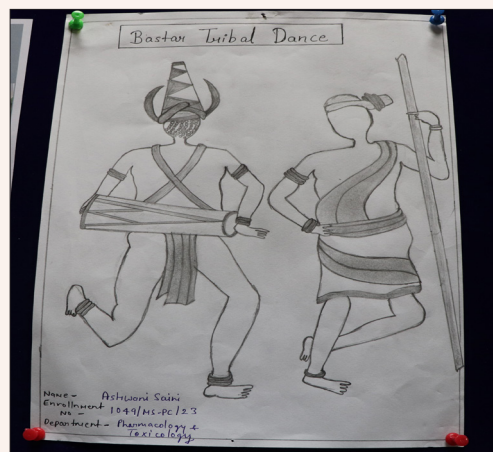 Bastar Tribal Dance
Name - Ashwani Saini
Enrollment No - 1049/MS-PC/23
Department - Pharmacology & Toxicology